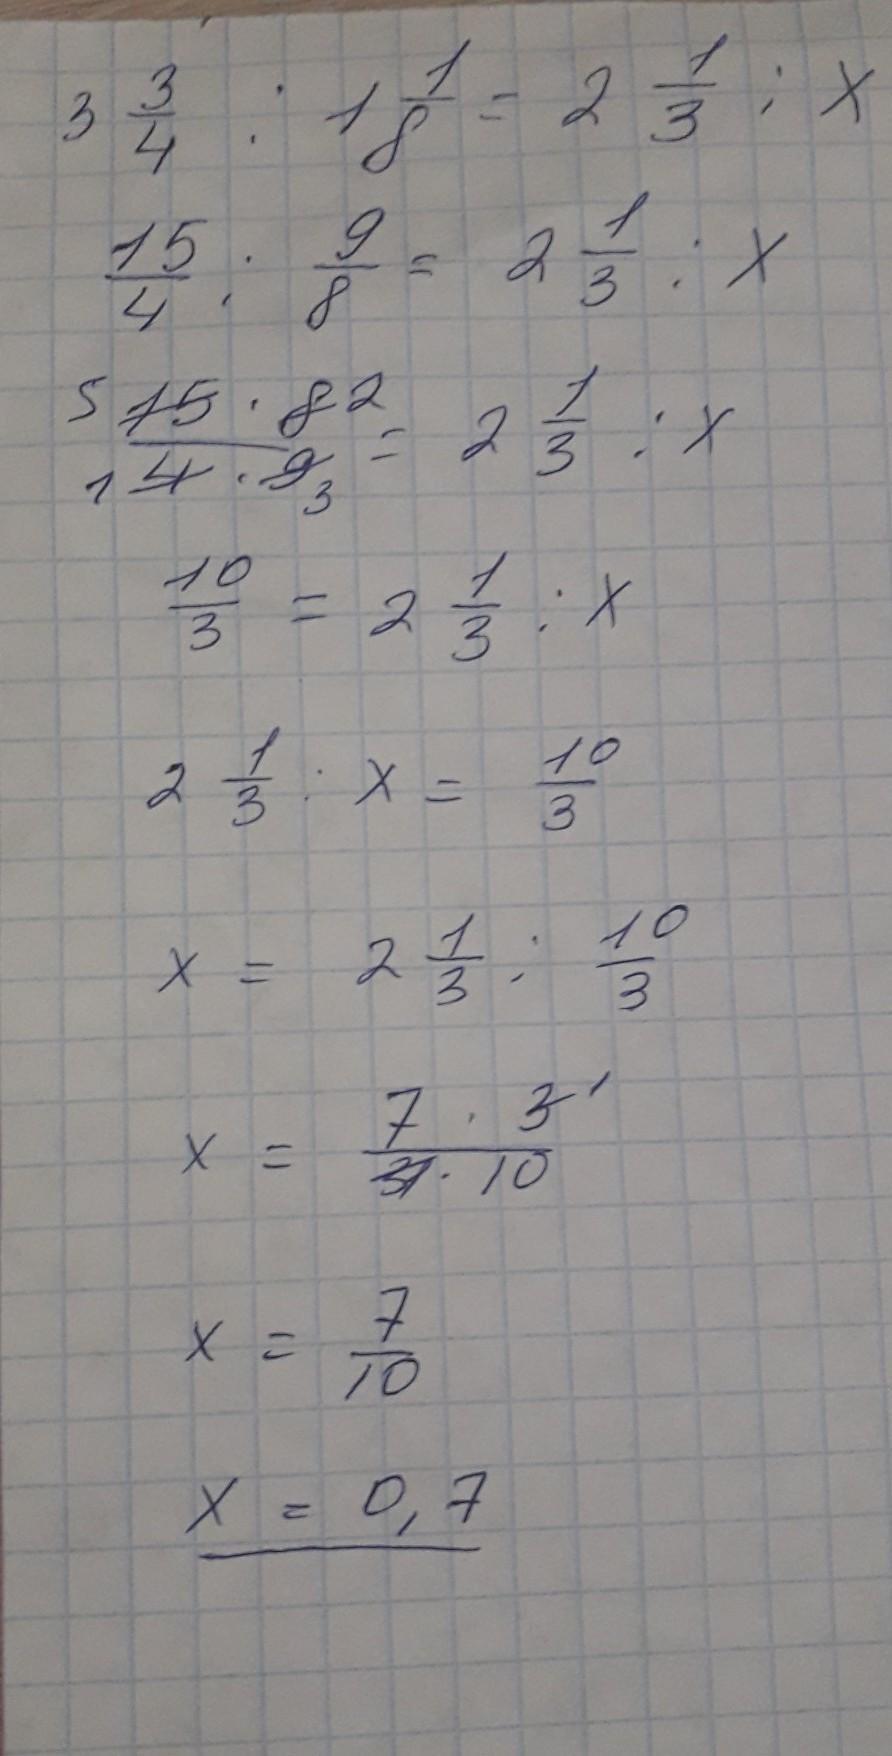 3 3/4 : 1 1/8 = 2 1/3 : x
15/4 : 9/8 = 2 1/3 : x
5 15 · 8 2 / 1 4 · 9 3 = 2 1/3 : x
10/3 = 2 1/3 : x
2 1/3 : x = 10/3
x = 2 1/3 : 10/3
x = 7 · 3 1 / 3 1 · 10
x = 7/10
x = 0,7